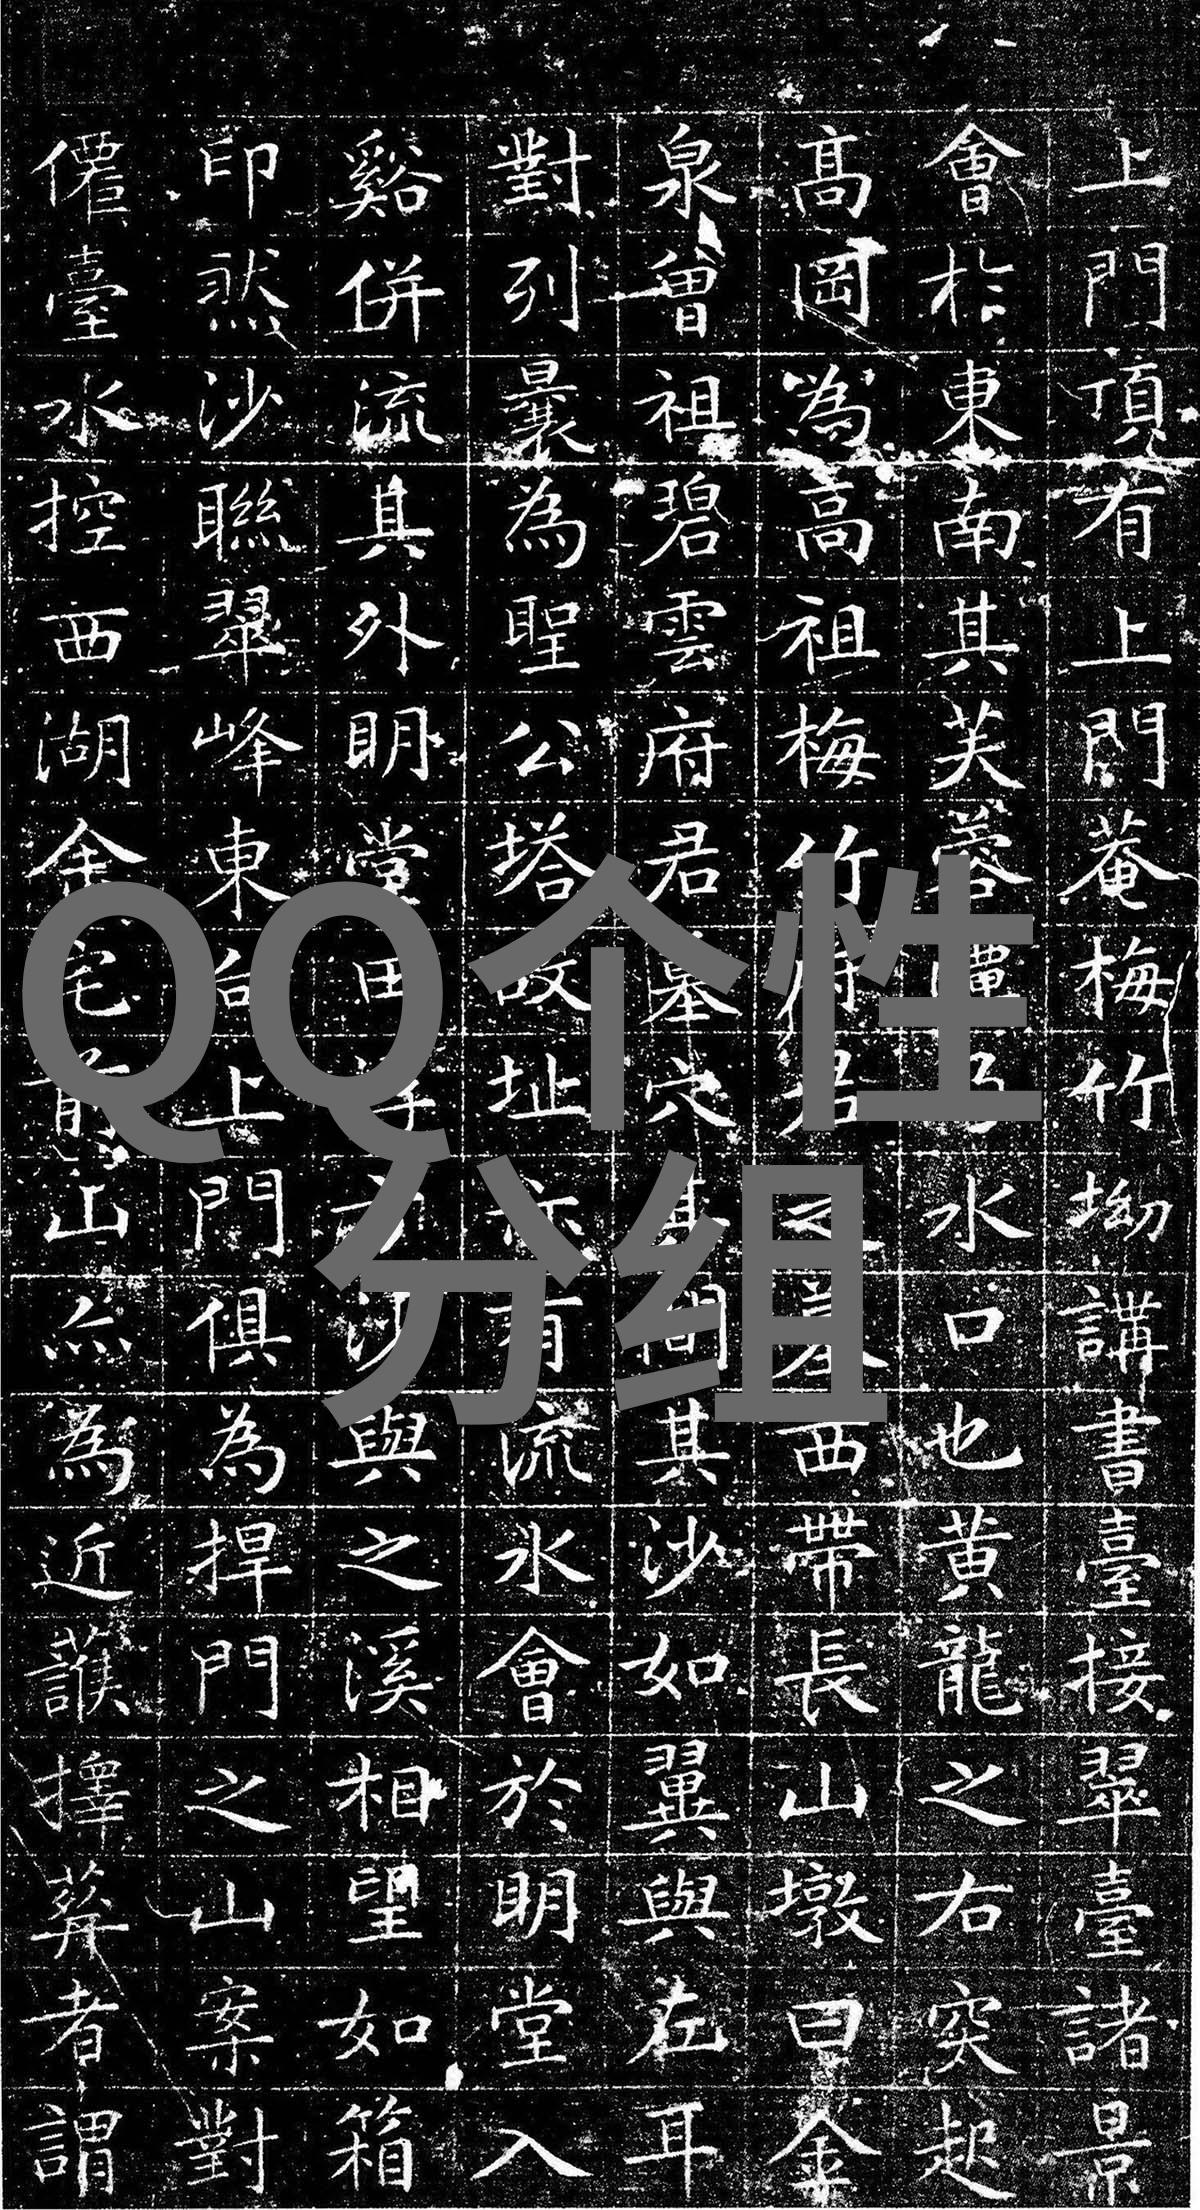 上門頂有上門菴梅竹坳講書臺接翠臺諸景
會扵東南其芙蓉乃水口也黃龍之右突起
高岡為高祖梅竹府君之墓西帶長山墩曰金
泉曾祖碧雲府君墓穴其間其沙如翼與左耳
對列曩為聖公塔故址亦有流水會於明堂入
谿併流其外明堂田沙與之溪相望如箱
印然沙聯翠峰東上門俱為捍門之山案對
僊臺水控西湖余宅前山為近擇葬者謂
QQ个性
分组